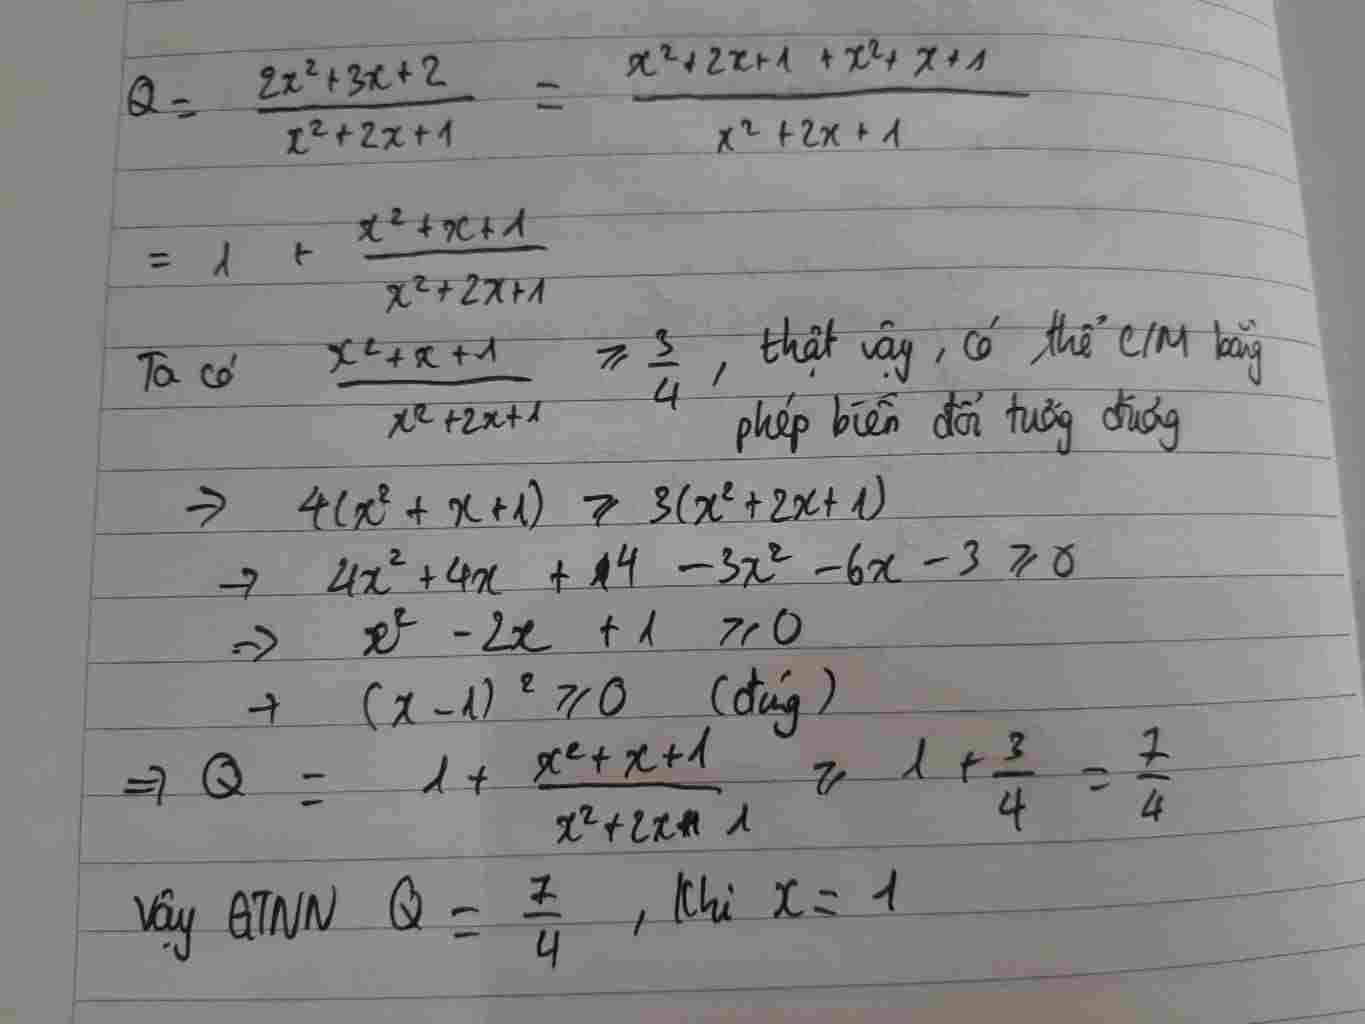 Q = (2x²+3x+2)/(x²+2x+1) = (x²+2x+1+x²+x+1)/(x²+2x+1)
= 1 + (x²+x+1)/(x²+2x+1)
Ta có (x²+x+1)/(x²+2x+1) ≥ 3/4, thật vậy, có thể C/M bằng
phép biến đổi tương đương
⇒ 4(x²+x+1) ≥ 3(x²+2x+1)
→ 4x²+4x+4-3x²-6x-3 ≥ 0
⇒ x²-2x+1 ≥ 0
→ (x-1)² ≥ 0 (đúng)
⇒ Q = 1 + (x²+x+1)/(x²+2x+1) ≥ 1 + 3/4 = 7/4
Vậy GTNN Q = 7/4, khi x = 1